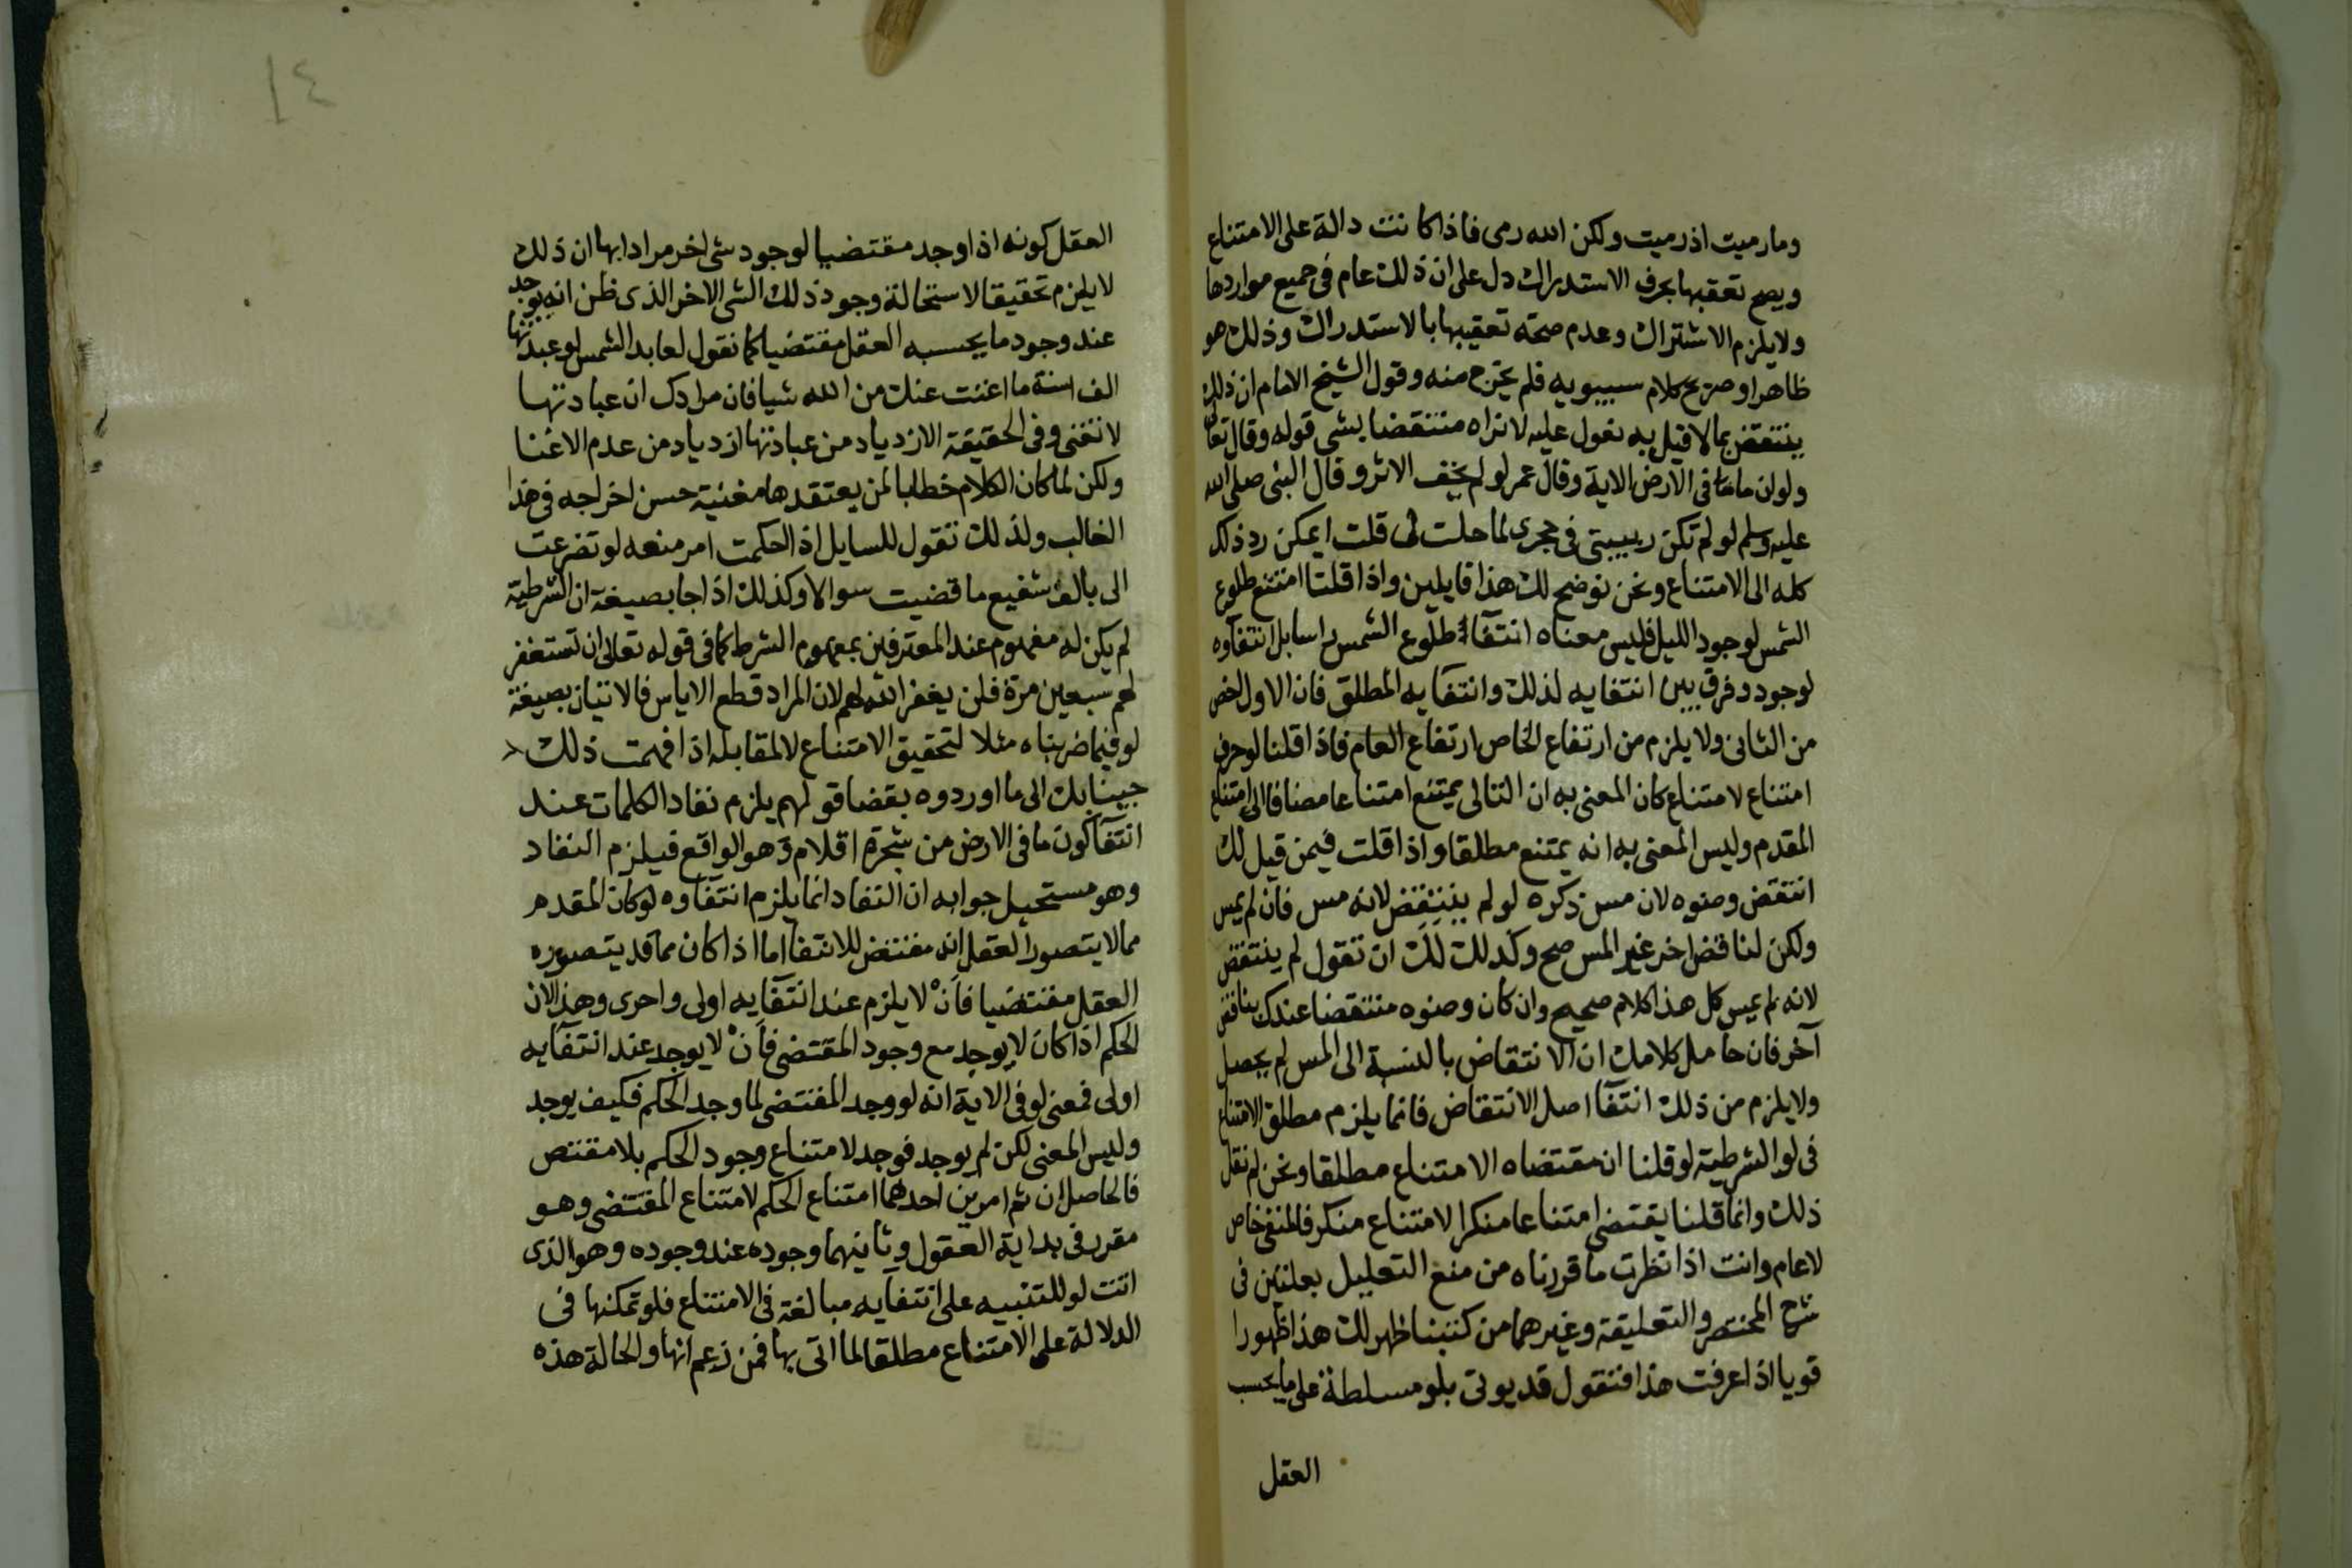 وما رميت اذ رميت ولكن الله رمى فاذا كانت دالة على الامتناع
ويصح تعقبها بحرف الاستدراك دل على ان ذلك عام فى جميع مواردها
ولا يلزم الاشتراك وعدم صحته تعقيبها بالاستدراك وذلك هو
ظاهر او صريح كلام سيبويه فلم يخرج منه وقول الشيخ الامام ان ذلك
ينتقض بما لا قبل به نقول عليه لا نراه منتقضا بشى قوله وقال تعالى
ولو ان ما فى الارض الاية وقال عمر لو لم يخف الاثر وقال النبى صلى الله
عليه وسلم لو لم تكن ربيبتى فى حجرى لما حلت لى قلت ايمكن رد ذلك
كله الى الامتناع ونحن نوضح لك هذا قايلين واذا قلنا امتنع طلوع
الشمس لوجود الليل فليس معناه انتفاء طلوع الشمس راسا بل انتفاوه
لوجود وفرق بين انتفايه لذلك وانتفايه المطلق فان الاول اخص
من الثانى ولا يلزم من ارتفاع الخاص ارتفاع العام فاذا قلنا لو حرف
امتناع لامتناع كان المعنى به ان التالى يمتنع امتناعا مضافا الى امتناع
المقدم وليس المعنى به انه يمتنع مطلقا واذا قلت فيمن قيل لك
انتقض وضوه لان مس ذكره لو لم ينتقض لانه مس فان لم يمس
ولكن لنا قض اخر غير المس صح وكدلك لك ان تقول لم ينتقض
لانه لم يمس كل هذا كلام صحيح وان كان وضوه منتقضا عندك بناقض
آخر فان حاصل كلامك ان الانتقاض بالنسبة الى المس لم يحصل
ولا يلزم من ذلك انتفآ اصل الانتقاض فانما يلزم مطلق الامتناع
فى لو الشرطية لو قلنا ان مقتضاه الامتناع مطلقا ونحن لم نقل
ذلك وانما قلنا يقتضى امتناعا منكرا لامتناع منكر فالمنفى خاص
لا عام وانت اذا نظرت ما قررناه من منع التعليل بعلتين فى
شرح المختصر والتعليقة وغيرهما من كتبنا ظهر لك هذا ظهورا
قويا اذا عرفت هذا فنقول قد يوتى بلو مسلطة على ما يحسب
العقل
١٤
العقل كونه اذا وجد مقتضيا لوجود شى اخر مرادا بها ان ذلك
لا يلزم تحقيقا لاستحالة وجود ذلك الشى الاخر الذى ظن انه يوجد
عند وجود ما يحسبه العقل مقتضيا كما نقول لعابد الشمس لو عبدتها
الف سنة ما اغنت عنك من الله شيا فان مرادك ان عبادتها
لا تغنى وفى الحقيقة الازدياد من عبادتها ازدياد من عدم الاغنا
ولكن لما كان الكلام خطابا لمن يعتقدها مغنية حسن اخراجه فى هذا
الغالب ولذلك تقول للسايل اذا احكمت امر منعه لو تضرعت
الى بالف شفيع ما قضيت سوالا وكذلك اذا جا بصيغة ان الشرطية
لم يكن له مفهوم عند المعترفين بمفهوم الشرط كما فى قوله تعالى ان تستغفر
لهم سبعين مرة فلن يغفر الله لهم لان المراد قطع الاياس فالاتيان بصيغة
لو فيما ضربناه مثلا لتحقيق الامتناع لا لمقابله اذا فهمت ذلك
جينا بك الى ما اوردوه بقضا قولهم يلزم نفاد الكلمات عند
انتفآ كون ما فى الارض من شجرة اقلام وهو الواقع فيلزم النفاد
وهو مستحيل جوابه ان النفاد انما يلزم انتفاوه لو كان المقدم
مما لا يتصور العقل انه مقتض للانتفا اما اذا كان مما قد يتصوره
العقل مقتضيا فان لا يلزم عند انتفآيه اولى واحرى وهذا لان
الحكم اذا كان لا يوجد مع وجود المقتضى فان لا يوجد عند انتفآيه
اولى فمعنى لو فى الاية انه لو وجد المقتضى لما وجد الحكم فكيف يوجد
وليس المعنى لكن لم يوجد فوجد لامتناع وجود الحكم بلا مقتض
فالحاصل ان ثم امرين احدهما امتناع الحكم لامتناع المقتضى وهو
مقرر فى بداية العقول وثانيهما وجوده عند وجوده وهو الذى
اتت لو للتنبيه على انتفايه مبالغة فى الامتناع فلو تمكنها فى
الدلالة على الامتناع مطلقا لما اتى بها فمن زعم انها والحالة هذه